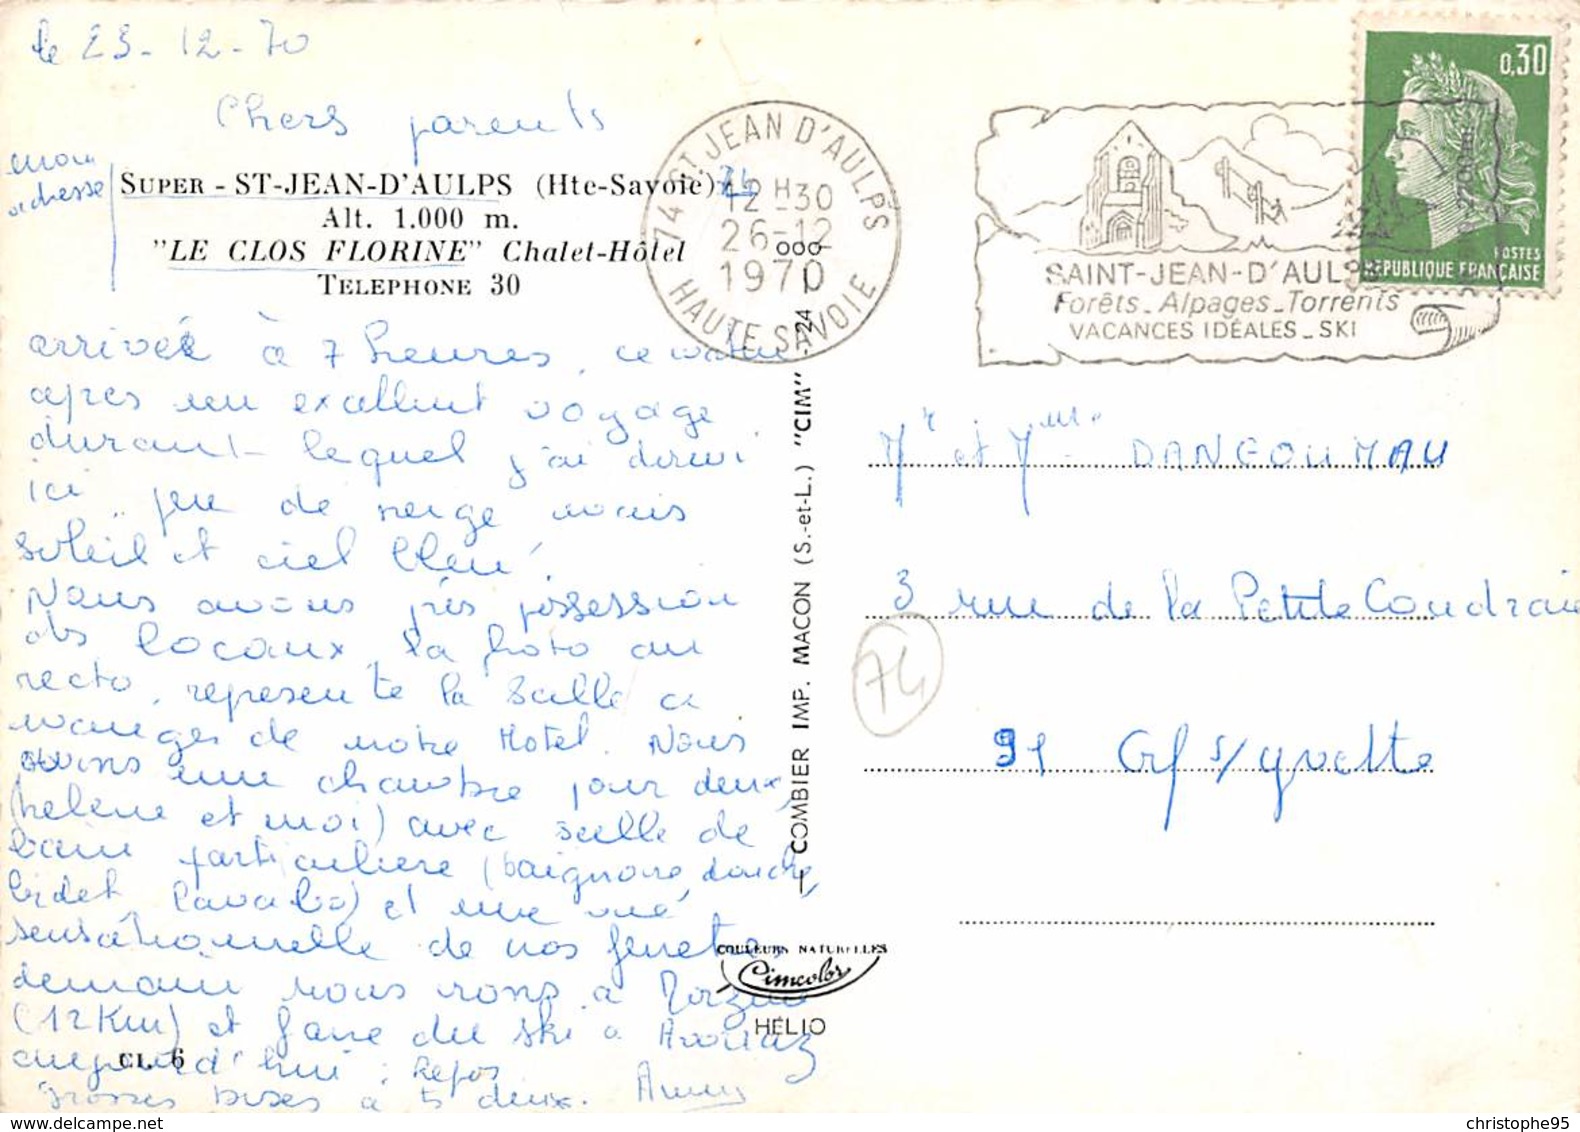 le 23-12-70
Chers parents
mon
adresse
SUPER - ST-JEAN-D'AULPS (Hte-Savoie) 74
Alt. 1.000 m.
"LE CLOS FLORINE" Chalet-Hôtel
TELEPHONE 30
arrivée à 7 heures, ce matin
apres un excellent voyage
durant lequel j'ai dormi
ici peu de neige mais
soleil et ciel bleu.
Nous avons pris possession
des locaux, la photo au
recto, represente la salle a
manger de notre Hotel. Nous
avons une chambre pour deux,
(helene et moi) avec salle de
bain particuliere (baignoire, douche,
bidet, lavabo) et une vue
sensationnelle de nos fenetres
demain nous irons a Morzine
(12 Km) et faire du ski a Avoriaz
aujourd'hui : Repos
grosses bises à 5 deux. Anny
CL. 6
74 ST JEAN D'AULPS
12 H 30
26-12
1970
HAUTE SAVOIE
SAINT-JEAN-D'AULPS
Forêts_Alpages_Torrents
VACANCES IDÉALES_SKI
0,30
POSTES
REPUBLIQUE FRANÇAISE
COMBIER IMP. MACON (S.-et-L.) "CIM"
COULEURS NATURELLES
Cimcolor
HELIO
Mr et Mme DANGOUMAU
3 rue de la Petite Coudraie
74
91 Gif s/yvette
christophe95